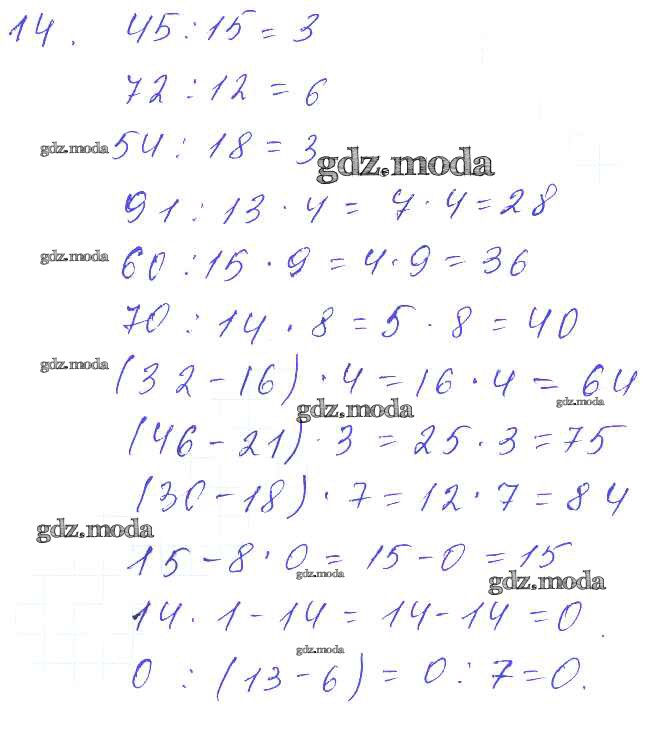 14. 45 : 15 = 3
72 : 12 = 6
gdz.moda 54 : 18 = 3 gdz.moda
91 : 13 · 4 = 7 · 4 = 28
gdz.moda 60 : 15 · 9 = 4 · 9 = 36
70 : 14 · 8 = 5 · 8 = 40
gdz.moda (32 - 16) · 4 = 16 · 4 = 64
gdz.moda gdz.moda
(46 - 21) · 3 = 25 · 3 = 75
(30 - 18) · 7 = 12 · 7 = 84
gdz.moda
15 - 8 · 0 = 15 - 0 = 15
gdz.moda gdz.moda
14 · 1 - 14 = 14 - 14 = 0
gdz.moda
0 : (13 - 6) = 0 : 7 = 0.